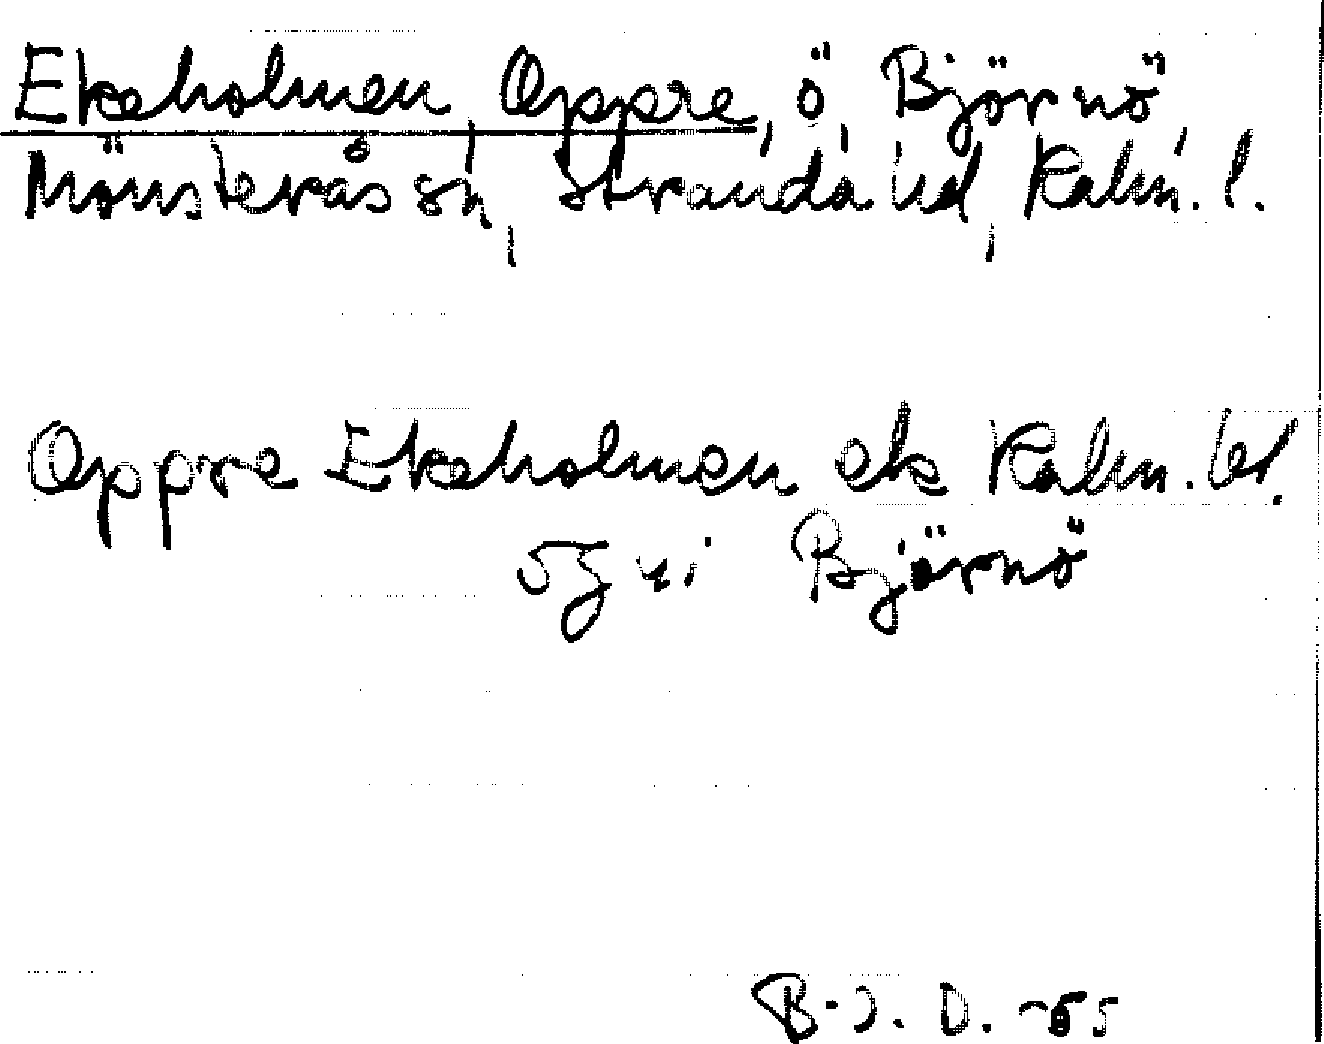 Ekeholmen, Oppre, ö, Björnö,
Mönsterås sn, Stranda hd, Kalm. l.
Oppre Ekeholmen ek Kalm. bl.
5g vi Björnö
B.J.D. -55